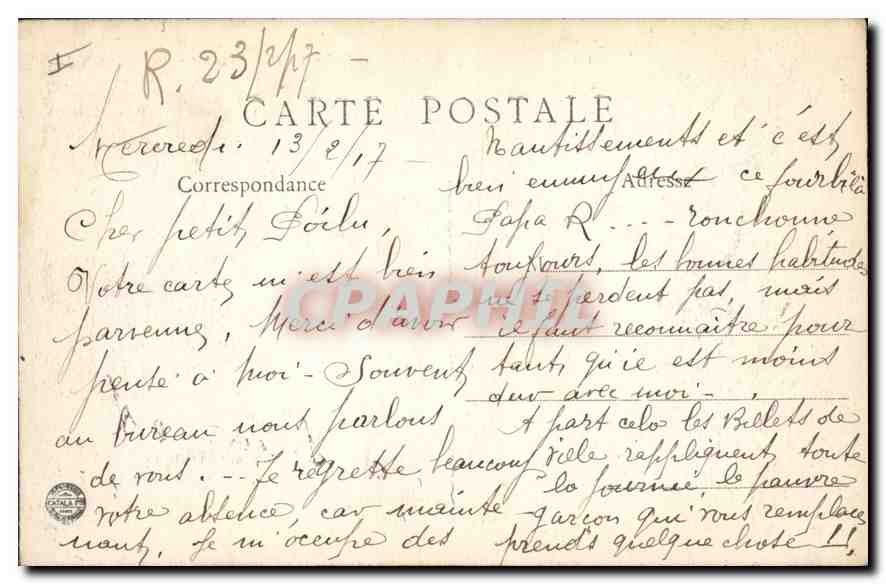 R. 23/2/17 -
CARTE POSTALE
Mercredi 13/2/17 -
Correspondance
Cher petit Poilu,
Votre carte m'est bien
parvenue, Merci d'avoir
pensé à moi - Souvent,
au bureau nous parlons
de vous. -- Je regrette beaucoup
votre absence, car mainte-
nant, je m'occupe des
Nantissements et c'est
bien ennuyeux ce fourbi là
Adresse
Papa R.... ronchonne
toujours, les bonnes habitudes
ne se perdent pas, mais
il faut reconnaître pour
tant, qu'il est moins
dur avec moi -.
A part cela les Billets de
Ville rappliquent, toute
la journée, le pauvre
garçon qui vous remplace,
prend quelque chose!!,
CPAPHIL
CATALA FRES